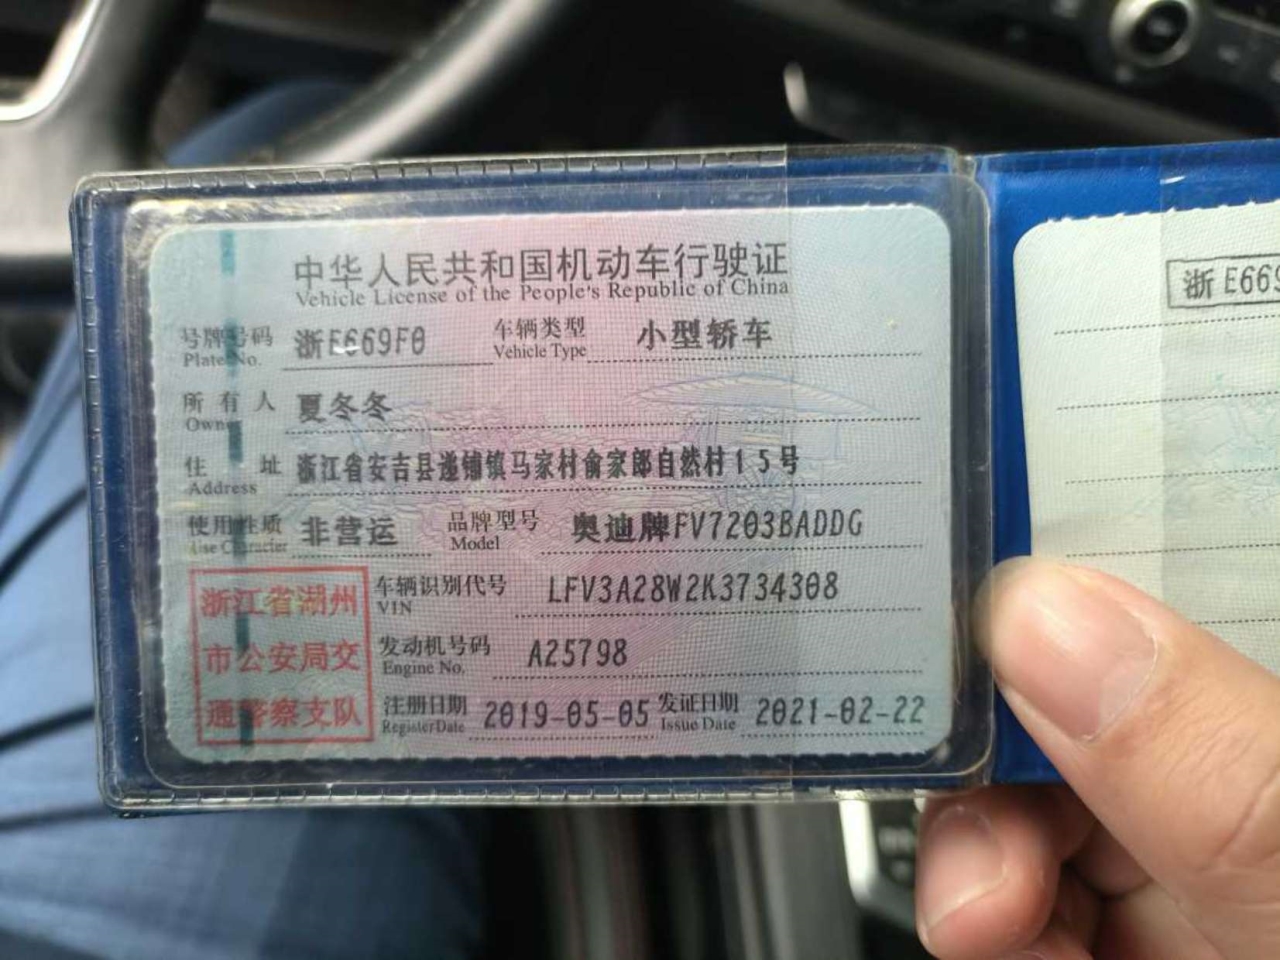 中华人民共和国机动车行驶证
Vehicle License of the People's Republic of China
号牌号码 浙E669F0 车辆类型 小型轿车
Plate No. Vehicle Type
所有人 夏冬冬
Owner
住址 浙江省安吉县递铺镇马家村俞家郎自然村15号
Address
使用性质 非营运 品牌型号 奥迪牌FV7203BADDG
Use Character Model
浙江省湖州
市公安局交
通警察支队
车辆识别代号 LFV3A28W2K3734308
VIN
发动机号码 A25798
Engine No.
注册日期 2019-05-05 发证日期 2021-02-22
Register Date Issue Date
浙E669